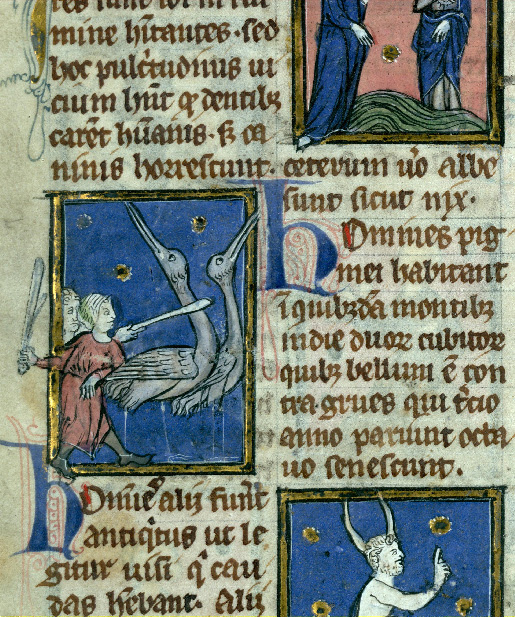 mine hitantes · sed
hoc pulctudinis ui
cium hnt q dentibz
caret huanis · & ca
ninis horrescunt · ceterum uo albe
sunt sicut nix ·
homines pig
mei habitant
i quibzda montibz
indie duor cubitor
quibz bellum e con
tra grues qui tcio
anno pariunt octa
uo senescunt .
homies alij fuiut
antiqtus ut le
gitur uisi q cau
das hebant · Alij